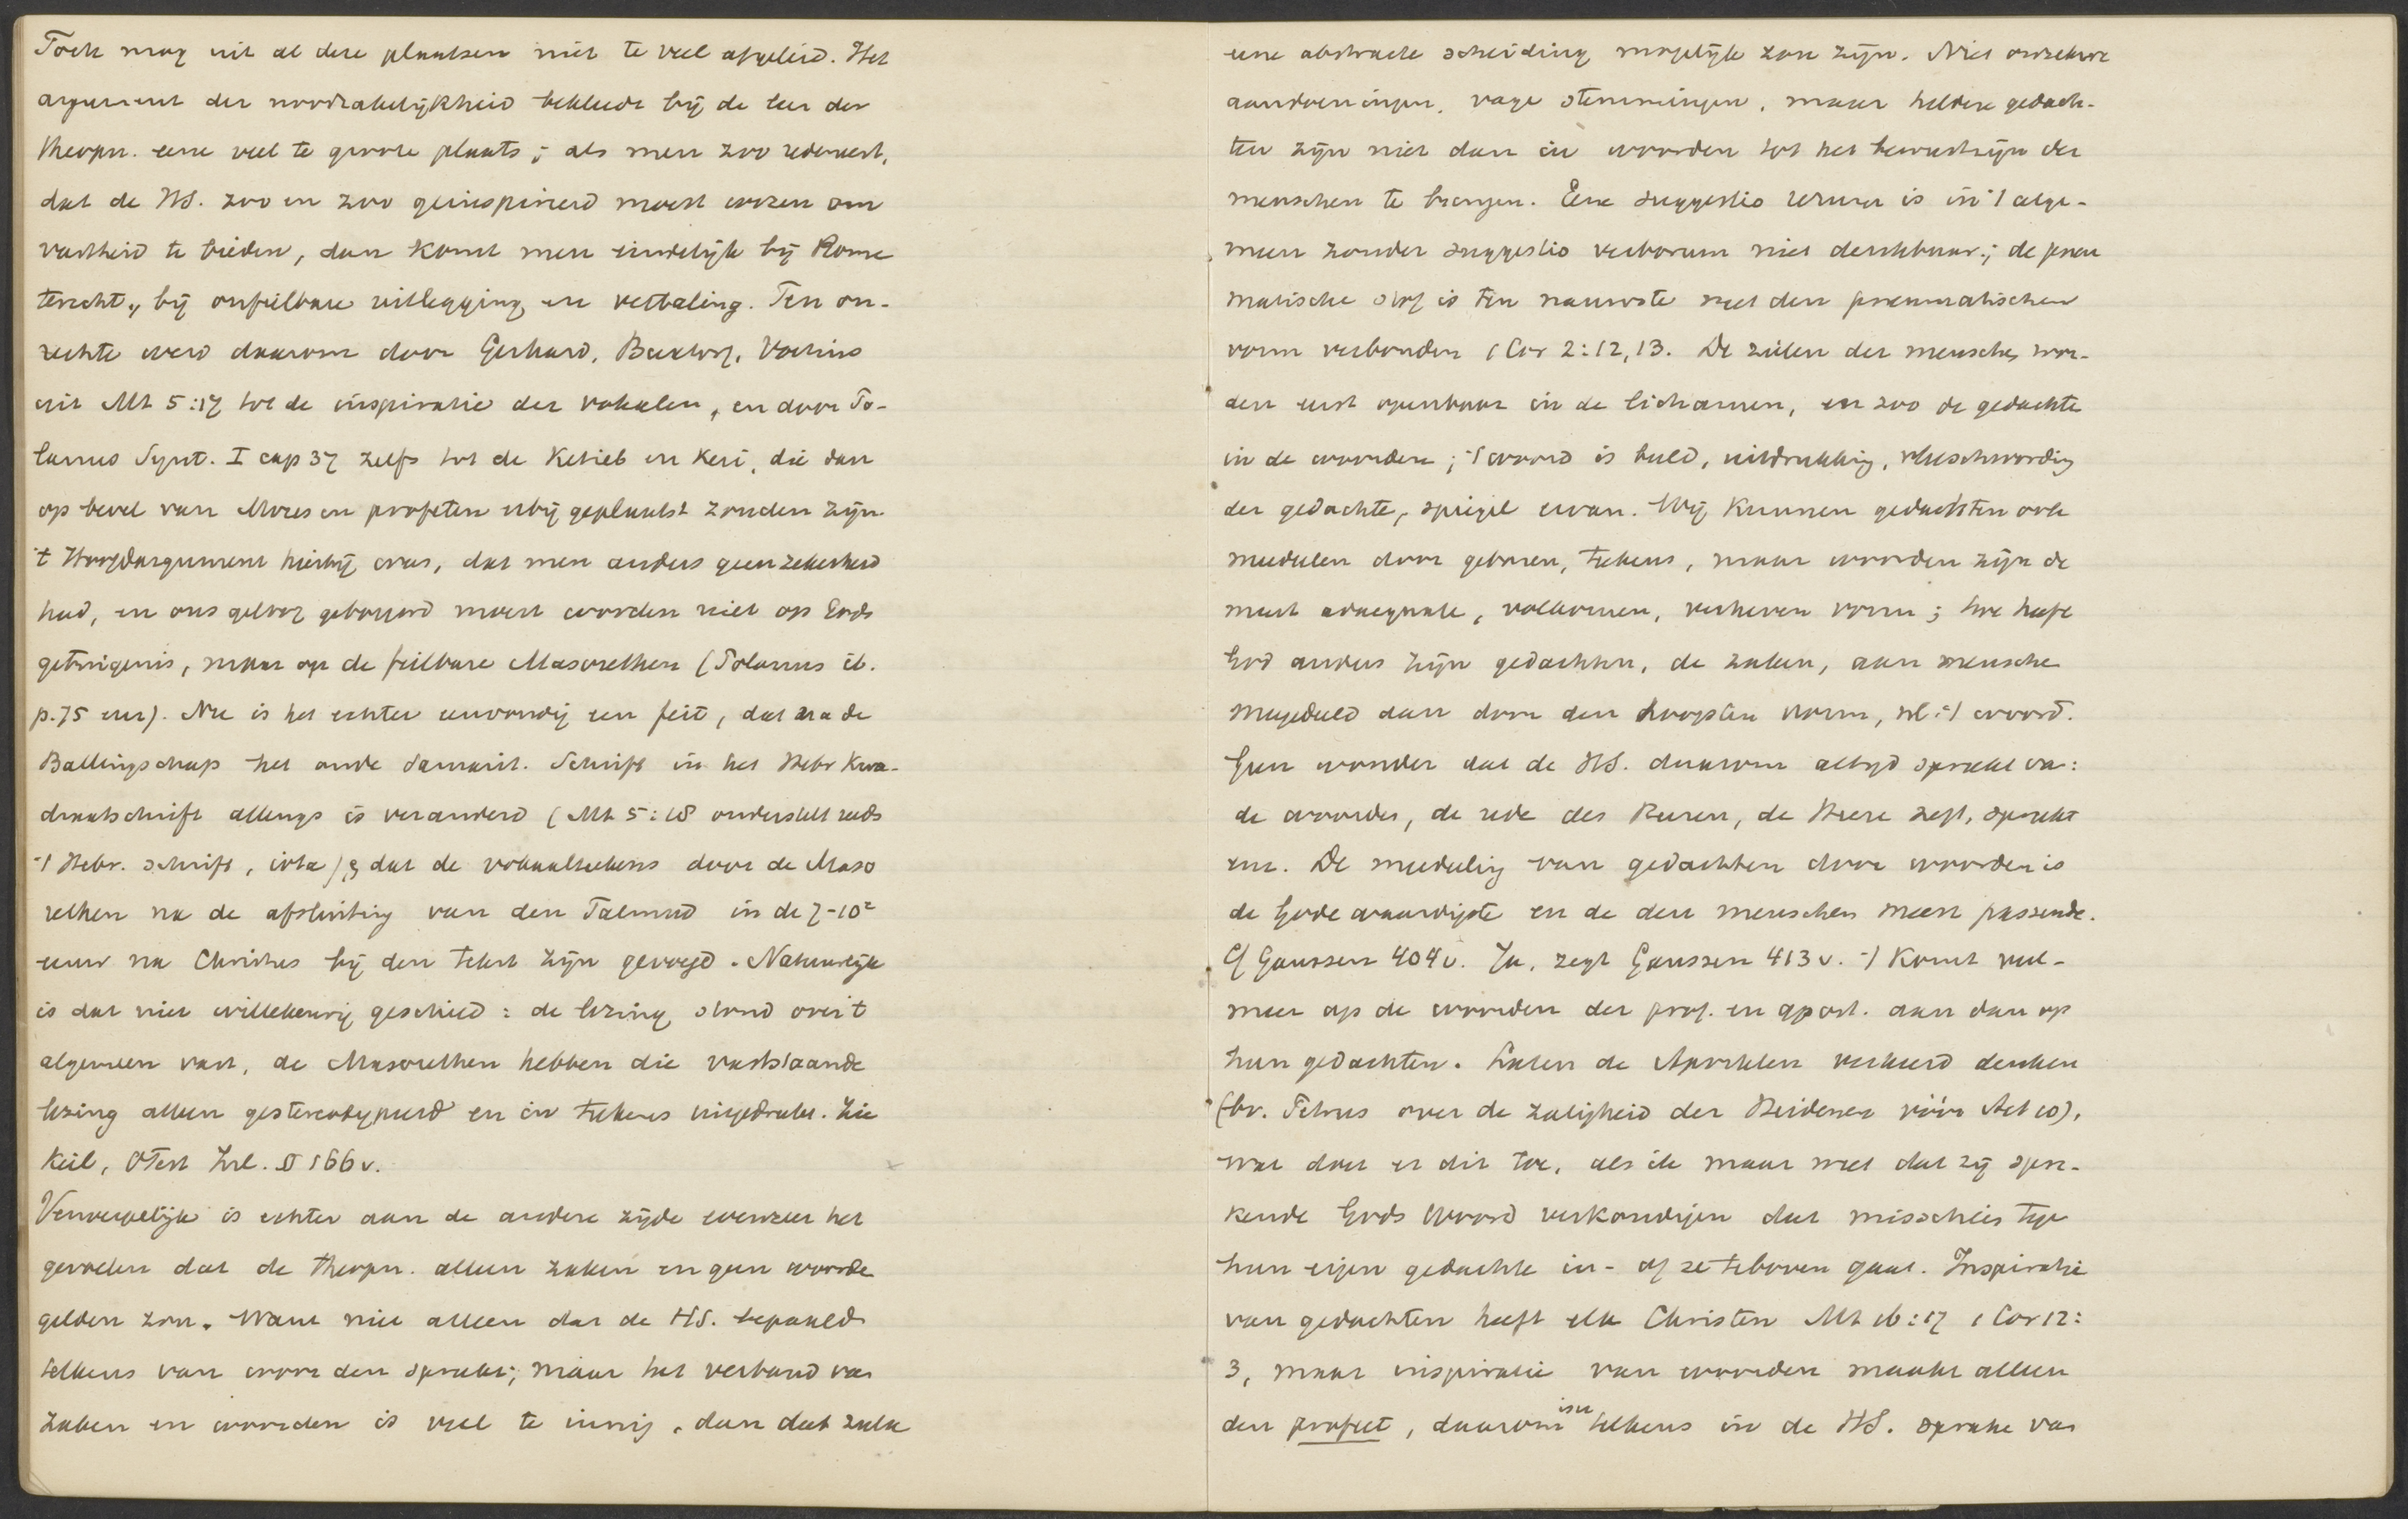 Toch mag uit al deze plaatsen niet te veel afgeleid. Het
argument der noodzakelijkheid bekleedt bij de leer der
theopn. eene veel te groote plaats; als men zoo redeneert,
dat de HS. zoo en zoo geinspireerd moest wezen om
vastheid te bieden, dan komt men eindelijk bij Rome
terecht, bij onfeilbare uitlegging en vertaling. Ten on-
rechte werd daarom door Gerhard, Buxtorf, Voetius
uit Mt 5:17 tot de inspiratie der vokalen, en door Po-
lanus Synt. I cap 37 zelfs tot de Ketieb en Keri, die dan
op bevel van Mozes en profeten erbij geplaatst zouden zijn
't Hoofdargument hierbij was, dat men anders geen zekerheid
had, en ons geloof gebouwd moest worden niet op Gods
getuigenis, maar op de feilbare Masorethen (Polanus ib.
p. 75 enz). Nu is het echter eenvoudig een feit, dat na de
Ballingschap het oude Samarit. Schrift in het Hebr Kwa-
draatschrift allengs is veranderd (Mt 5:18 onderstelt reeds
't Hebr. schrift, iota) & dat de vokaalteekens door de Maso
rethen na de afsluiting van den Talmud in de 7-10e
eeuw na Christus bij den tekst zijn gevoegd. Natuurlijk
is dat niet willekeurig geschied: de lezing stond over 't
algemeen vast, de Masorethen hebben die vaststaande
lezing alleen gestereotypeerd en in teekens uitgedrukt. Zie
Keil, OTest Inl. § 166 v.
Verwerpelijk is echter aan de andere zijde evenzeer het
gevoelen dat de theopn. alleen zaken en geen woorden
gelden zou. Want niet alleen dat de HS. bepaald
telkens van woorden spreekt; maar het verband van
zaken en woorden is veel te innig, dan dat zulk
eene abstracte scheiding mogelijk zou zijn. Niet onzekere
aandoeningen, vage stemmingen, maar heldere gedach-
ten zijn niet dan in woorden tot het bewustzijn der
menschen te brengen. Eene suggestio rerum is in 't alge-
meen zonder suggestio verborum niet denkbaar; de pneu
matische stof is ten nauwste met den pneumatischen
vorm verbonden 1 Cor 2:12, 13. De zielen der menschen wor-
den eerst openbaar in de lichamen, en zoo de gedachte
in de woorden; 't woord is beeld, uitdrukking, vleeschwording
der gedachte, spiegel ervan. Wij kunnen gedachten ook
mededeelen door gebaren, teekens, maar woorden zijn de
meest adaequate, volkomen, verheven vorm; hoe heeft
God anders zijn gedachten, de zaken, aan menschen
meegedeeld dan door den hoogsten vorm, nl. 't woord.
Geen wonder dat de HS. daarom altijd spreekt van:
de woorden, de rede des Heeren, de Heere zegt, spreekt
enz. De mededeeling van gedachten door woorden is
de Gode waardigste en de den menschen meest passende.
Cf Gaussen 404 v. Ja, zegt Gaussen 413 v. 't Komt veel-
meer op de woorden der prof. en apost. aan dan op
hun gedachten. Laten de Apostelen verkeerd denken
(bv. Petrus over de zaligheid der Heidenen vóór Act 10),
wat doet er dit toe, als ik maar weet dat zij spre-
kende Gods Woord verkondigen dat misschien tegen
hun eigen gedachte in- of ze teboven gaat. Inspiratie
van gedachten heeft elk Christen Mt 16:17 1 Cor 12:
3, maar inspiratie van woorden maakt alleen
den profeet, daarom is er telkens in de HS. sprake van